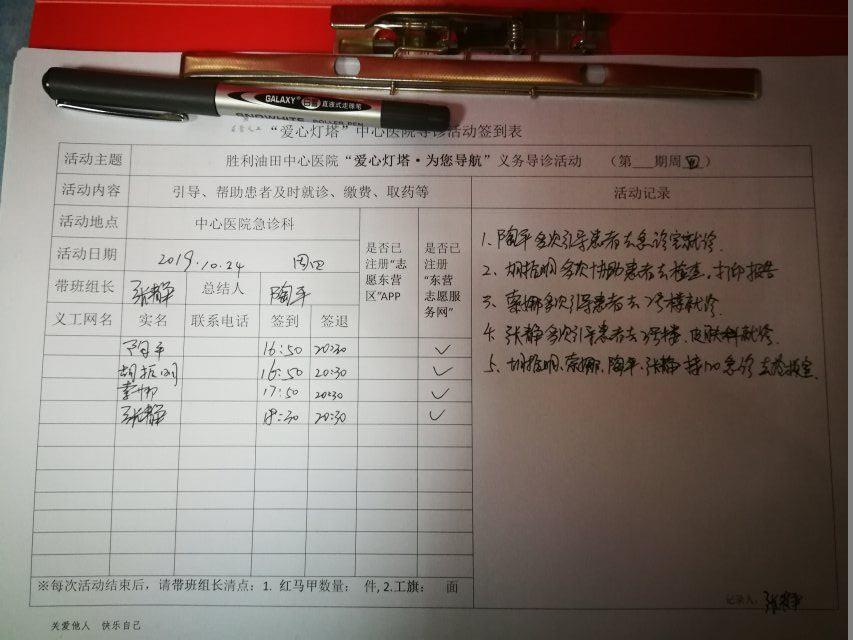 GALAXY 白雪 直液式走珠笔
SNOWWHITE ROLLER PEN
“爱心灯塔”中心医院导诊活动签到表
活动主题 胜利油田中心医院“爱心灯塔·为您导航”义务导诊活动 （第___期周四）
活动内容 引导、帮助患者及时就诊、缴费、取药等 活动记录
活动地点 中心医院急诊科 是否已注册“志愿东营区”APP 是否已注册“东营志愿服务网”
活动日期 2019.10.24 周四
带班组长 张静 总结人 陶平
义工网名 实名 联系电话 签到 签退
陶平 16:50 20:30 ✓
胡振明 16:50 20:30 ✓
17:50 20:30 ✓
张静 18:30 20:30 ✓
1、陶平多次引导患者去急诊室就诊.
2、胡振明多次协助患者去检查，打印报告
3、娜多次引导患者去2号楼就诊.
4、张静多次引导患者去2号楼、皮肤科就诊.
5、胡振明、娜、陶平、张静 急诊去
※每次活动结束后，请带班组长清点：1. 红马甲数量： 件, 2.工旗： 面
记录人: 张静
关爱他人 快乐自己